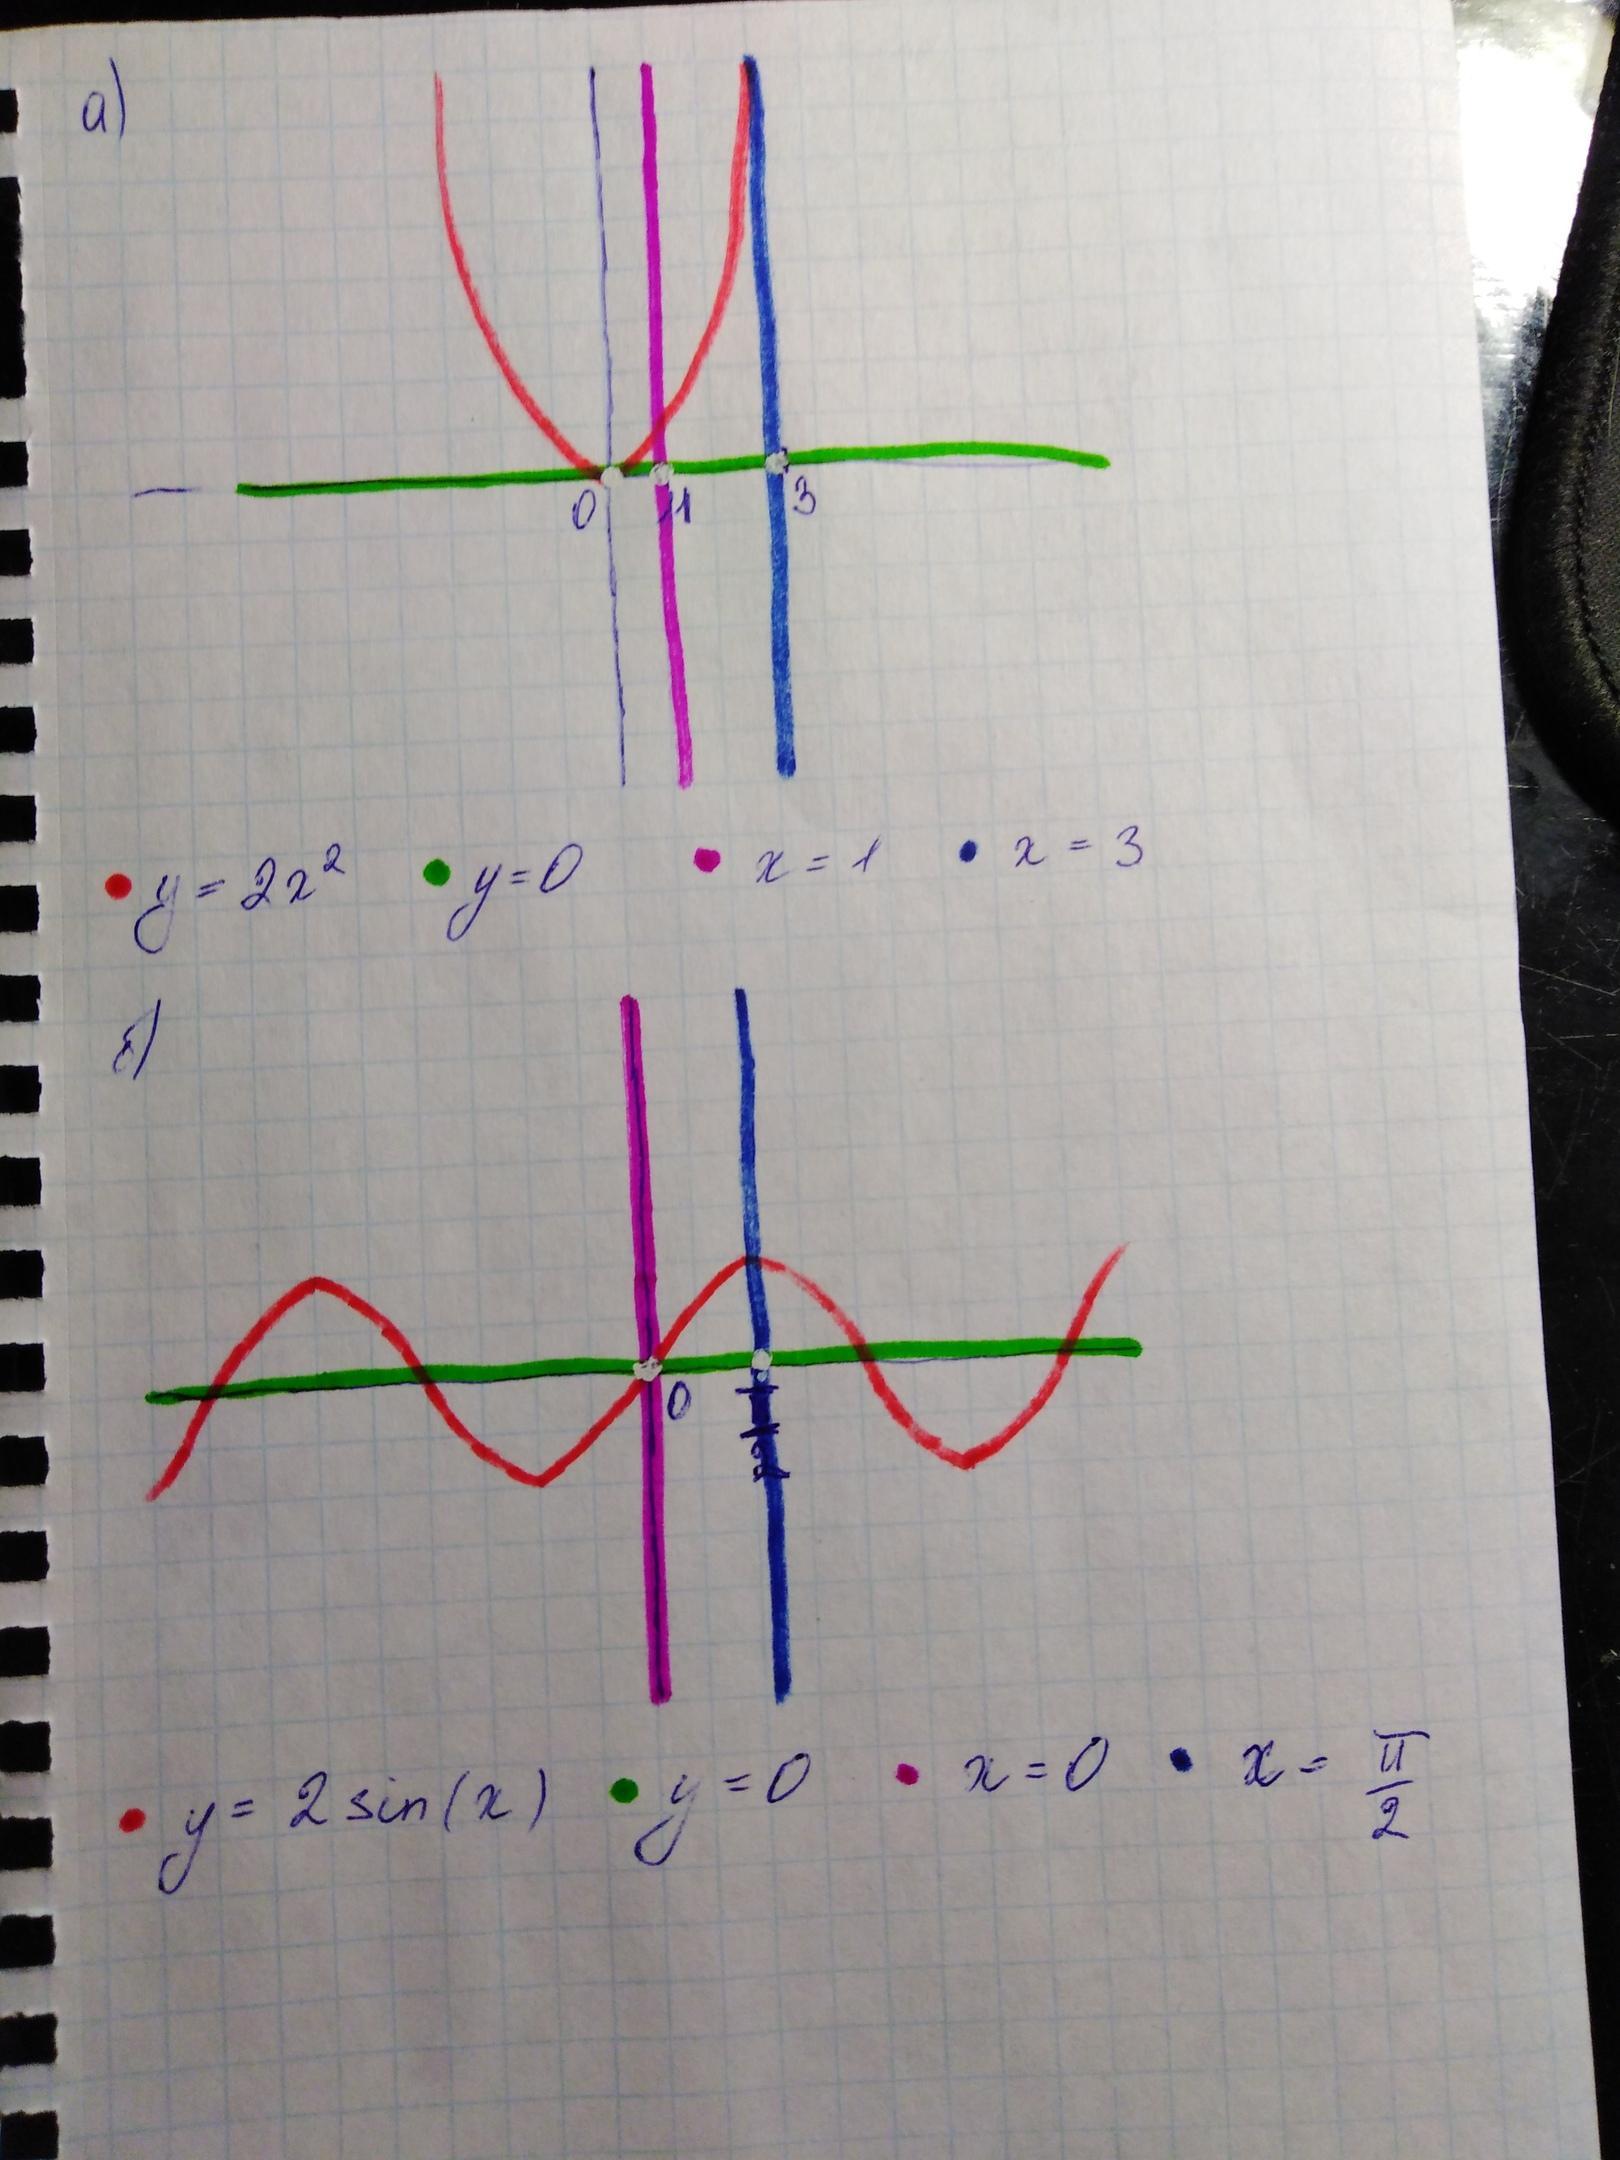 а)
0 1 3
y = 2x² y=0 x = 1 x = 3
б)
0
π/2
y = 2 sin(x) y = 0 x = 0 x = π/2